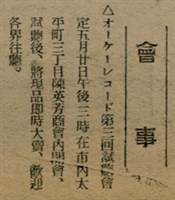 會事
△オーケーレコード第三回試聽會
定五月廿日午後三時在市內太
平町三丁目陳英芳商會內開會、
試聽後、將現品即時大賣、歡迎
各界往聽。